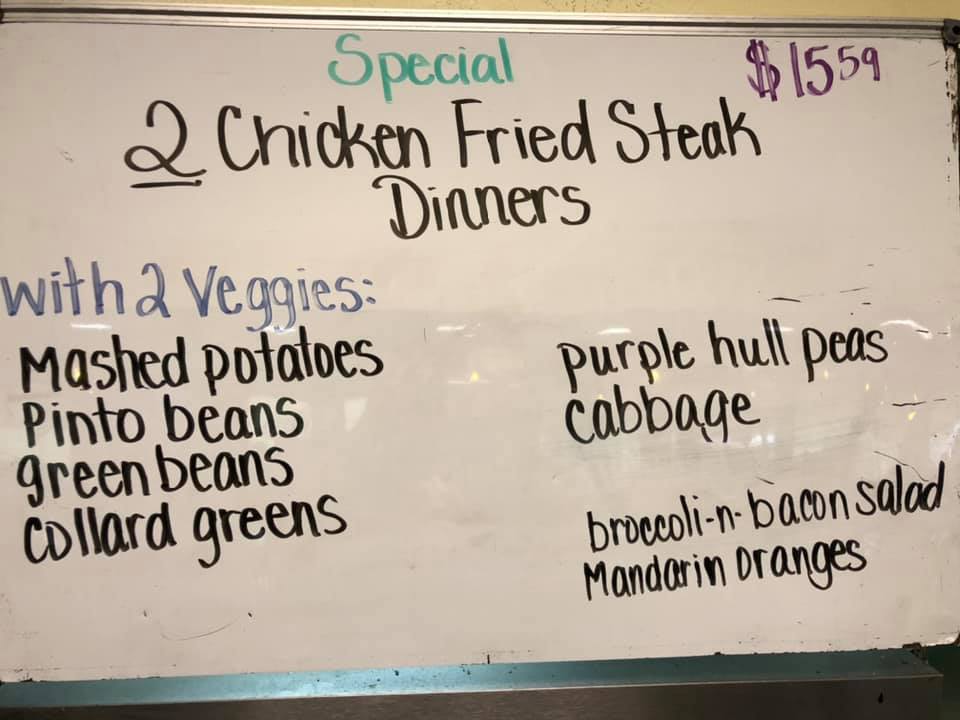 Special
$15.59
2 Chicken Fried Steak
Dinners
with 2 Veggies:
Mashed potatoes
Pinto beans
green beans
collard greens
purple hull peas
cabbage
broccoli-n-bacon salad
Mandarin oranges